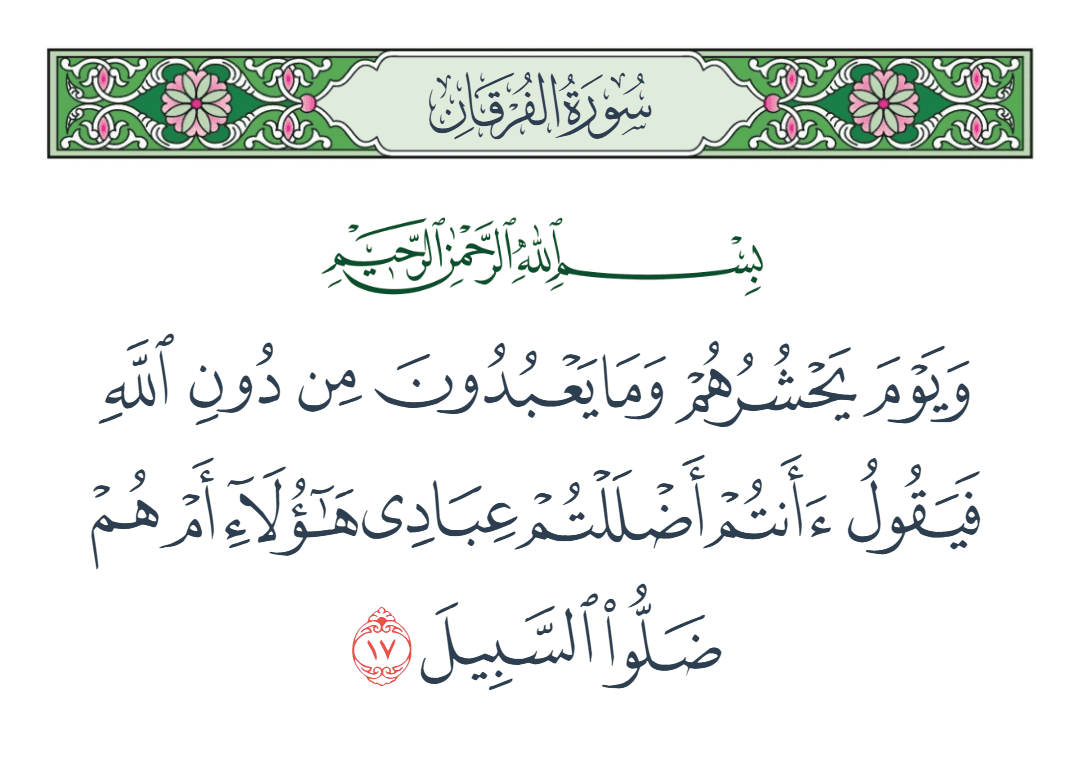 سُورَةُ الْفُرْقَانِ
بِسْمِ ٱللَّهِ ٱلرَّحْمَٰنِ ٱلرَّحِيمِ
وَيَوْمَ يَحْشُرُهُمْ وَمَا يَعْبُدُونَ مِن دُونِ ٱللَّهِ
فَيَقُولُ ءَأَنتُمْ أَضْلَلْتُمْ عِبَادِى هَٰٓؤُلَآءِ أَمْ هُمْ
ضَلُّوا۟ ٱلسَّبِيلَ ١٧